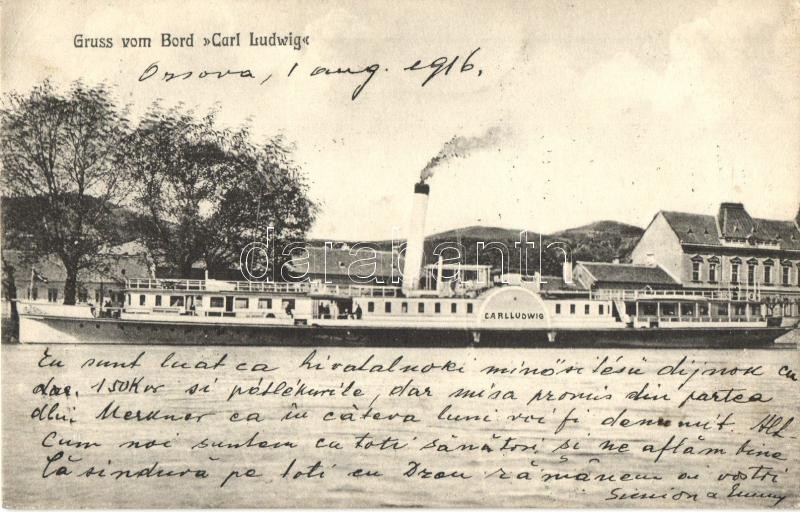 Gruss vom Bord »Carl Ludwig«
Orsova, 1 aug. 1916.
darabanth
CARL LUDWIG
Eu sunt luat ca hivatalnoki minősitésü dijnok cu
150 Kor si pótlékurile, dar mi sa promis din partea
dlui Merkner ca in câteva luni voi fi denumit. Alt-
Cum noi suntem cu toti sănătosi si ne aflăm bine
Lăsindură pe toti cu Dzeu rămânem ai vostri
Simion a Emmy